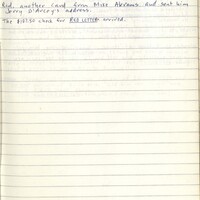 Rcd. another card from Miss Abrams and sent him
Jerry D'Arcey's address.
The check for RED LETTER arrived.